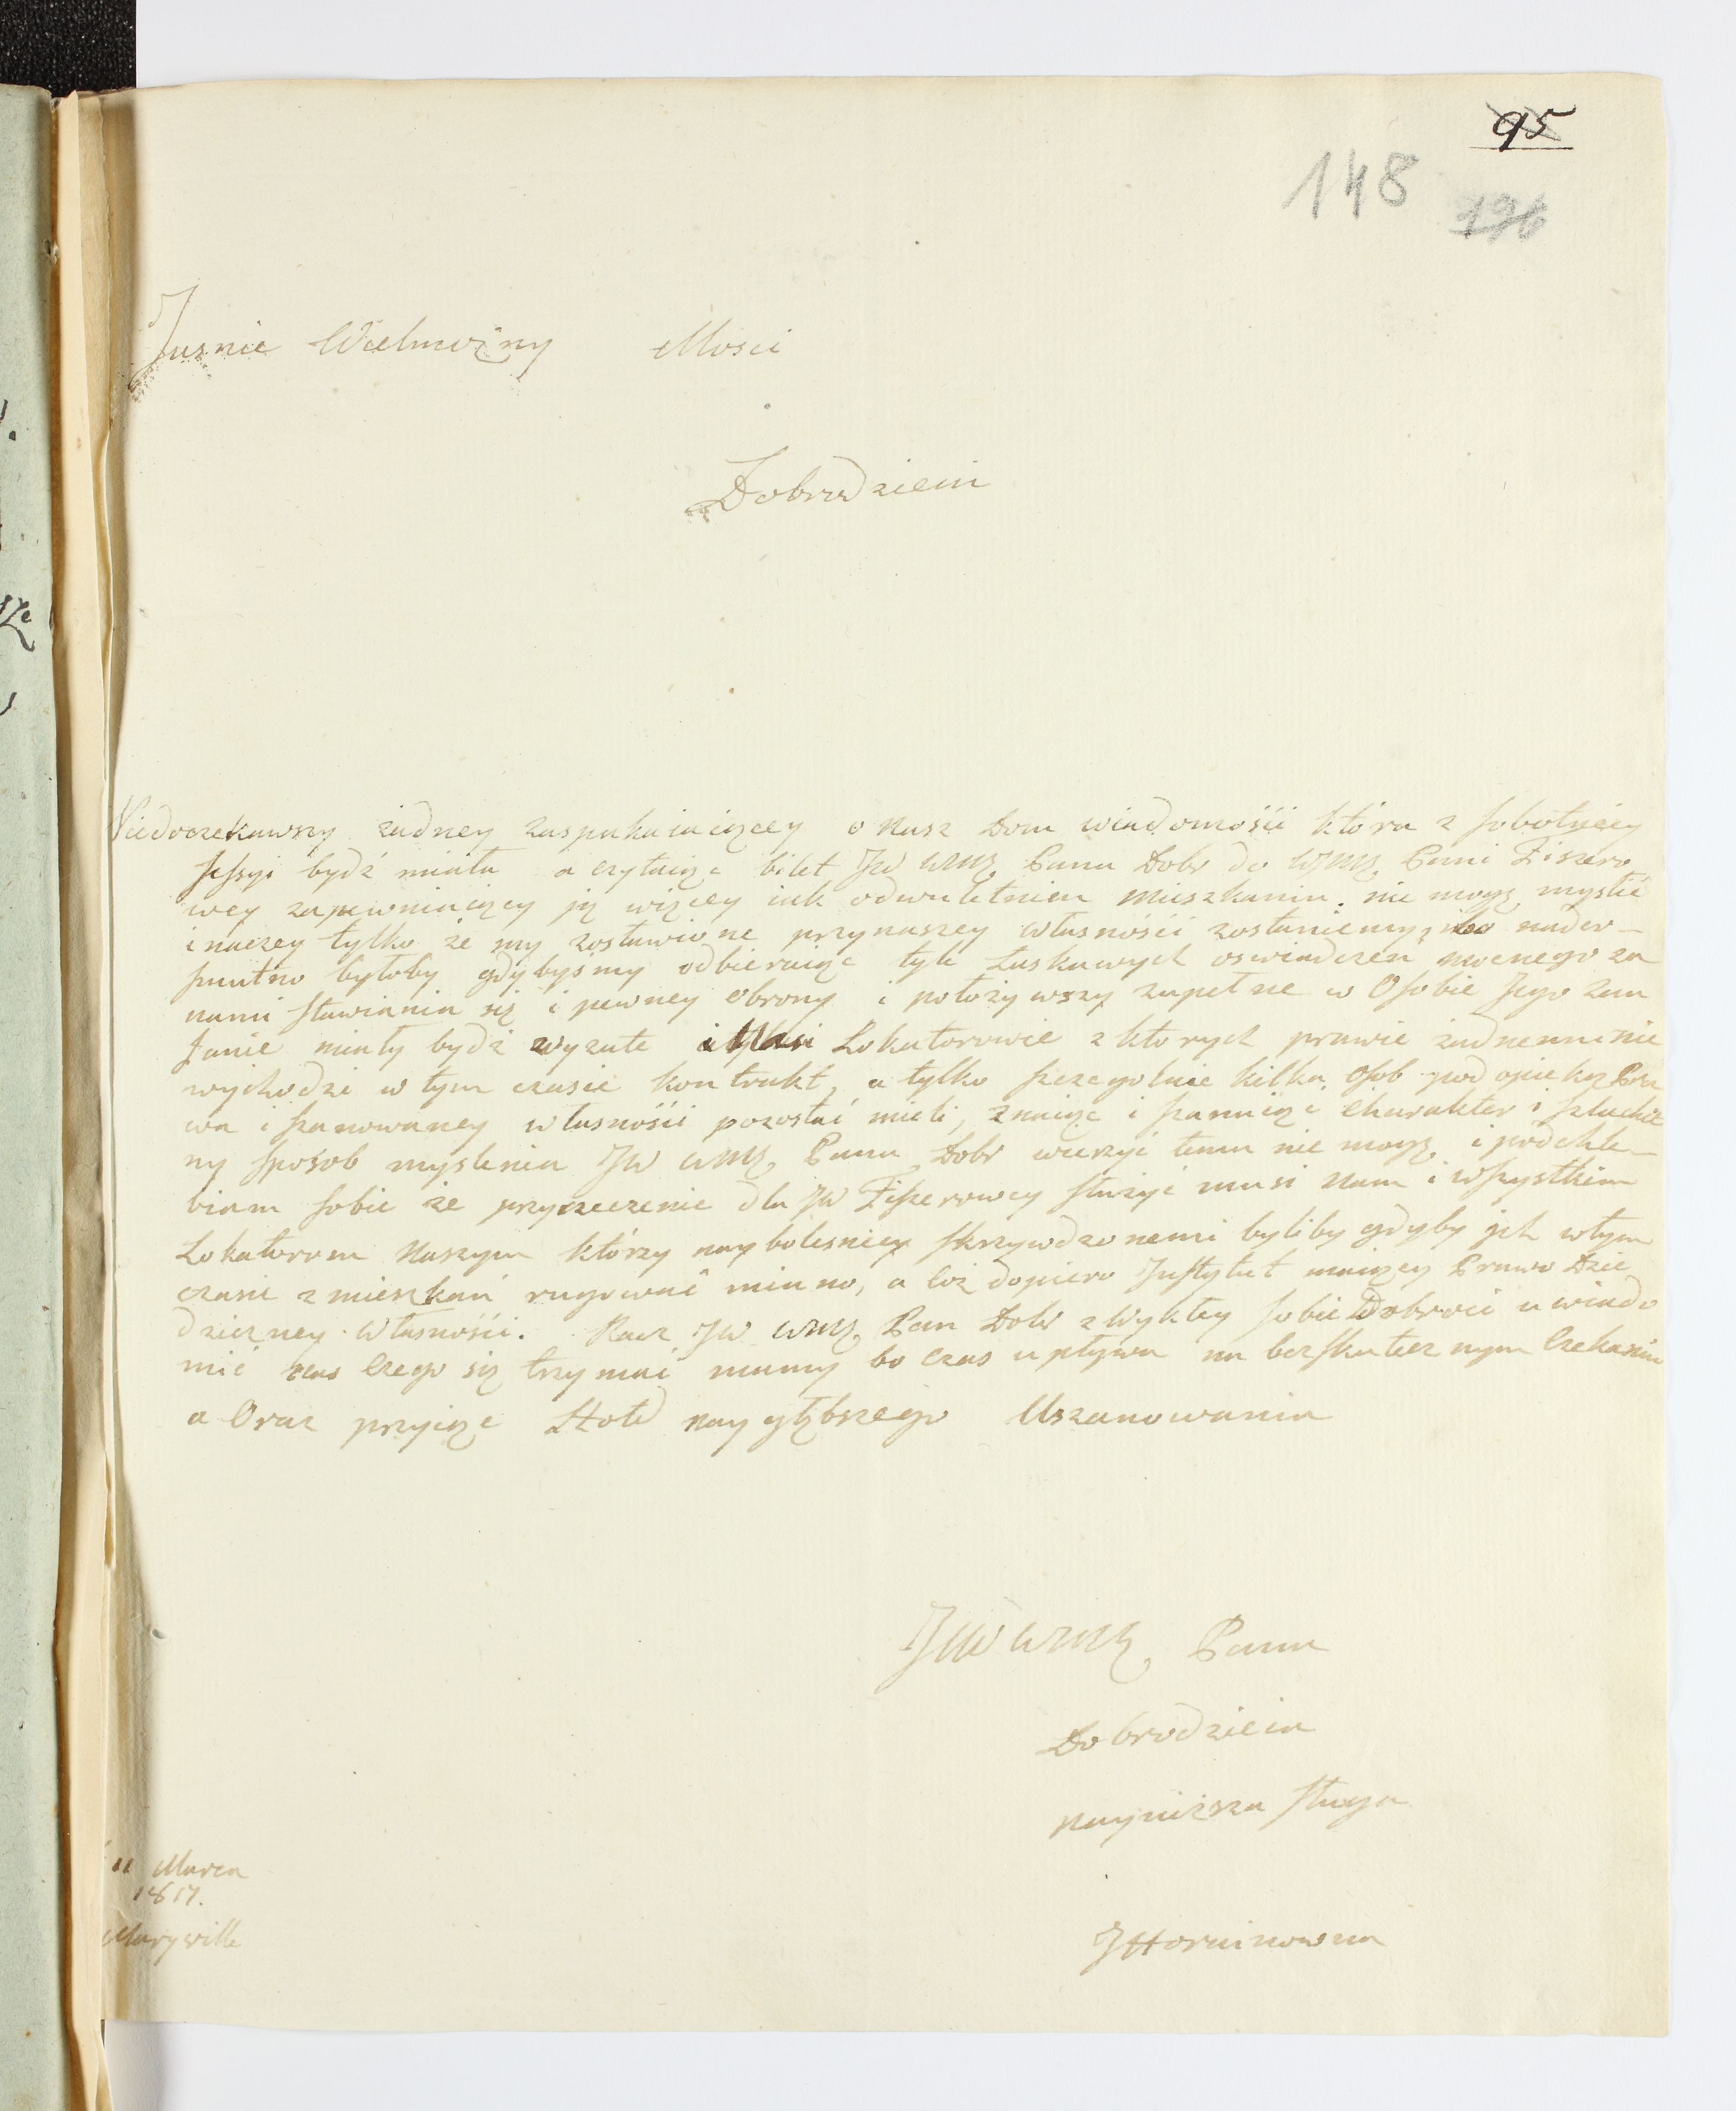 95
148
196
Jasnie Wielmożny Mosci
Dobrodzieiu
Niedoczekawszy żadney zaspakaiaiącey o nasz Dom wiadomośii która z sobotniey
sessyi bydź miała a czytaiąc bilet JW WMę Pana Dobr do WJMę Pani Fiszero
wey zapewniaiący ją więcey iak odwuletniem mieszkaniu. nie mogę mysleć
inaczey tylko że my zostawione przynaszey własnośći zostaniemy, bo nader-
smutno byłoby gdybyśmy odbieraiąc tyle Łaskawych oswiadczeń mocnego za
nami stawiania się i pewney obrony i położywszy zupełne w Osobie Jego zau
fanie miały bydź wyzute i Nasi Lokatorowie z ktorych prawie żadnemu nie
wychodzi w tym czasie kontrakt, a tylko szczegolnie kilka Osob pod opieką Pra
wa i szanowaney własnośii pozostać mieli, znaiąc i szanuiąc charakter i szlachet
ny sposob myslenia JW WMę Pana Dobr wierzyć temu nie mogę i podchle-
biam sobie że przyrzeczenie dla JW Fiszerowey służyć musi Nam i wszystkim
Lokatorom Naszym którzy naybolesniey skrzywdzonemi byliby gdyby jch wtym
czasie z mieszkań rugować miano, a coż dopiero Jnstytut maiący Prawo Dzie
dziczney Własnośći. Racz JW WMę Pan Dobr zwykłey sobie Dobroci uwiado
mić nas czego się trzymać mamy bo czas upływa na bezskutecznym Czekaniu
a Oraz przyiąć Hołd naygłębszego Uszanowania
JW WMę Pana
Dobrodzieia
nayniższa sługa
11 Marca
1817.
Maryville
JHorninowna